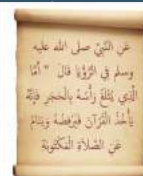 عَنِ النَّبِيِّ صلى الله عليه
وسلم فِي الرُّؤْيَا قَالَ " أَمَّا
الَّذِي يُثْلَغُ رَأْسُهُ بِالْحَجَرِ فَإِنَّهُ
يَأْخُذُ الْقُرْآنَ فَيَرْفِضُهُ وَيَنَامُ
عَنِ الصَّلاَةِ الْمَكْتُوبَةِ